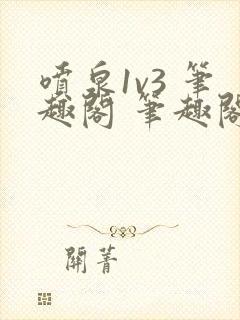 噴泉1v3 筆
趣閣 筆趣閣
開菁